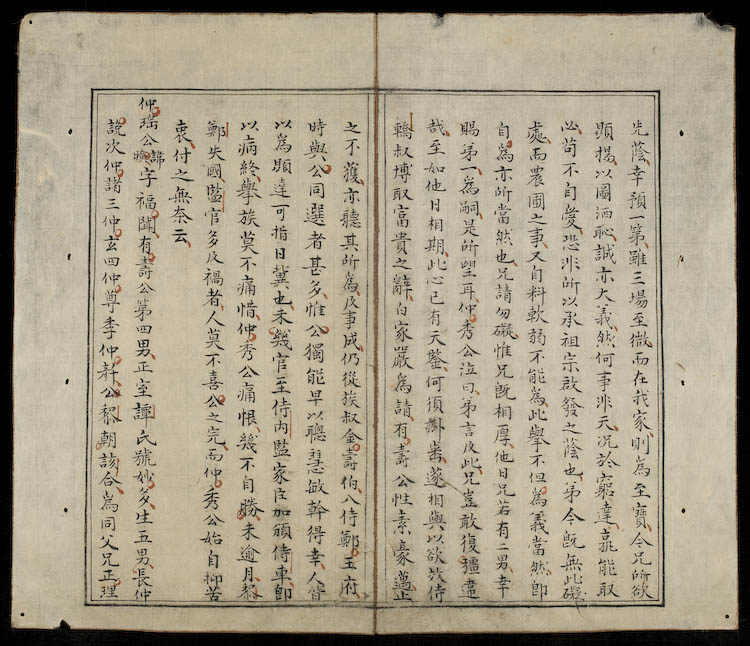 先蔭幸預一第雖三場至微而在我家則為至寶今兄所欲
顯揚以圖洒恥誠亦大義然何事非天况於窮達孰能取
必苟不自愛恐非所以承祖宗啟發之蔭也弟今既無此礙
處而農圃之事又自料軟弱不能為此舉不但為義當然即
自為亦所當然也兄請勿礙惟兄既相厚他日兄若有二男幸
賜弟一為嗣是所望耳仲秀公泣曰弟言及此兄豈敢復彊違
哉至如他日相期此心已有天鑒何須掛齒遂相與以欲從侍
轎叔博取富貴之辭白家嚴為請有壽公性素豪邁止
之不獲亦聽其所為及事成仍從族叔金壽伯八侍鄭王府
時與公同選者甚多惟公獨能早以聰慧敏幹得幸人皆
以為顯達可指日冀也未幾官至侍內監家臣加頒侍車即
以病終舉族莫不痛惜仲秀公痛恨幾不自勝未逾月黎
鄭失國監官多及禍者人莫不喜公之完而仲秀公始自抑苦
衷付之無奈云
仲瑤公諱 字福聞有壽公第四男正室譚氏號妙多生五男長仲
說次仲諸三仲玄四仲尊季仲耕公黎朝該合為同父兄正理